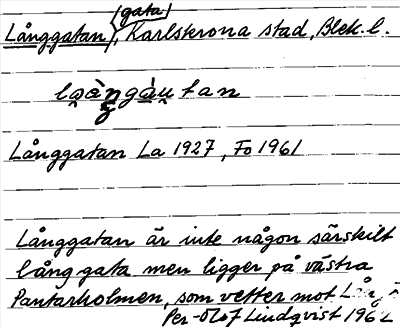 Långgatan (gata), Karlskrona stad, Blek. l.
Långgatan La 1927, Fo 1961
Långgatan är inte någon särskilt
lång gata men ligger på västra
Pantarholmen, som vetter mot
Per-Olof Lindqvist 1962